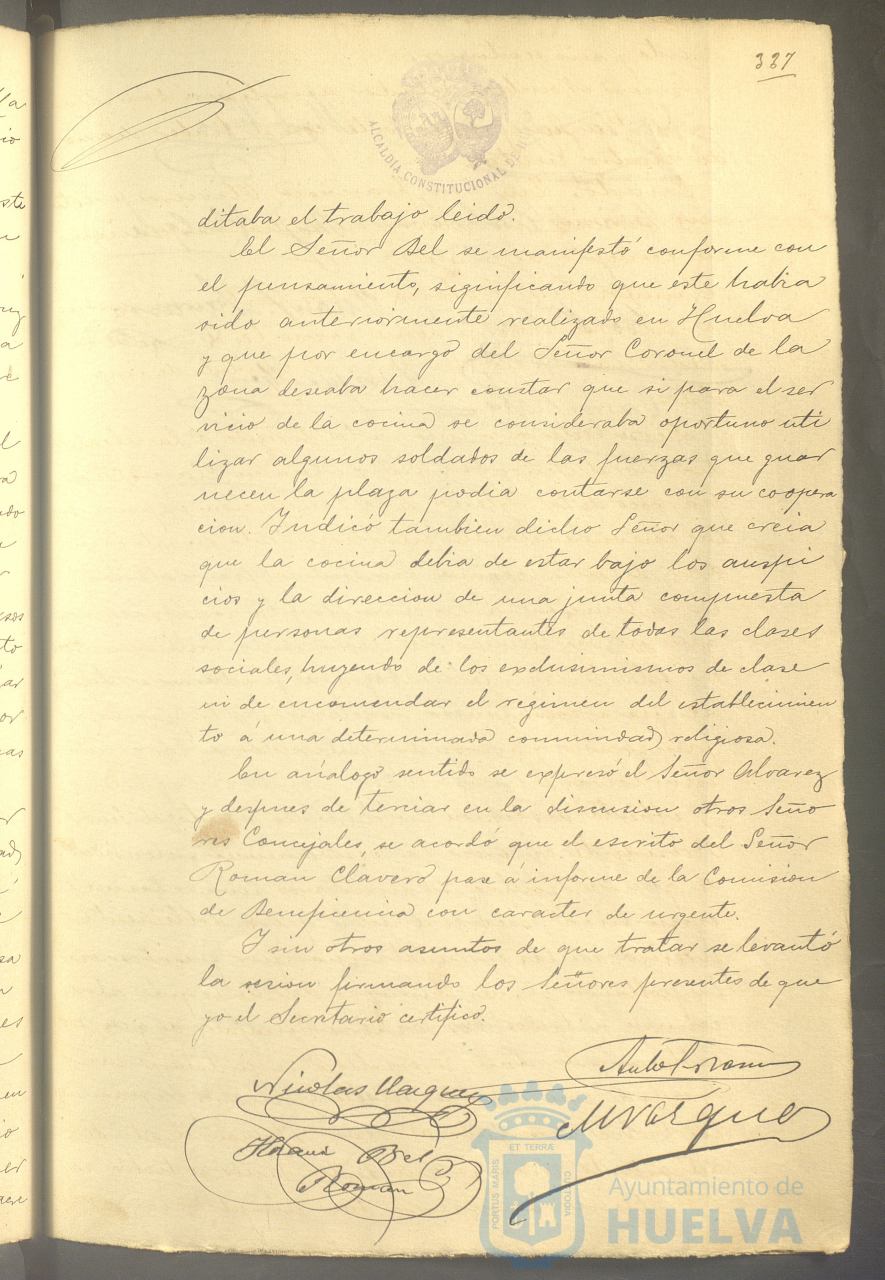 337
ALCALDIA CONSTITUCIONAL DE
ditaba el trabajo leido.
El Señor Bel se manifestó conforme con
el pensamiento, significando que este habia
sido anteriormente realizado en Huelva
y que por encargo del Señor Coronel de la
zona deseaba hacer constar que si para el ser
vicio de la cocina se consideraba oportuno uti
lizar algunos soldados de las fuerzas que guar
necen la plaza podia contarse con su coopera
cion. Indicó tambien dicho Señor que creia
que la cocina debia de estar bajo los auspi
cios y la direccion de una junta compuesta
de personas representantes de todas las clases
sociales, huyendo de los exclusimismos de clase
ni de encomendar el régimen del establecimien
to á una determinada comunidad religiosa.
En análogo sentido se expresó el Señor Alvarez
y despues de terciar en la discusion otros Seño
res Concejales, se acordó que el escrito del Señor
Roman Clavero pase á informe de la Comision
de Beneficencia con caracter de urgente.
Y sin otros asuntos de que tratar se levantó
la sesion firmando los Señores presentes de que
yo el Secretario certifico.
Nicolas Vazquez
M Vazquez
Bel
Roman
PORTUS MARIS
ET TERRÆ
CUSTODIA
Ayuntamiento de
HUELVA